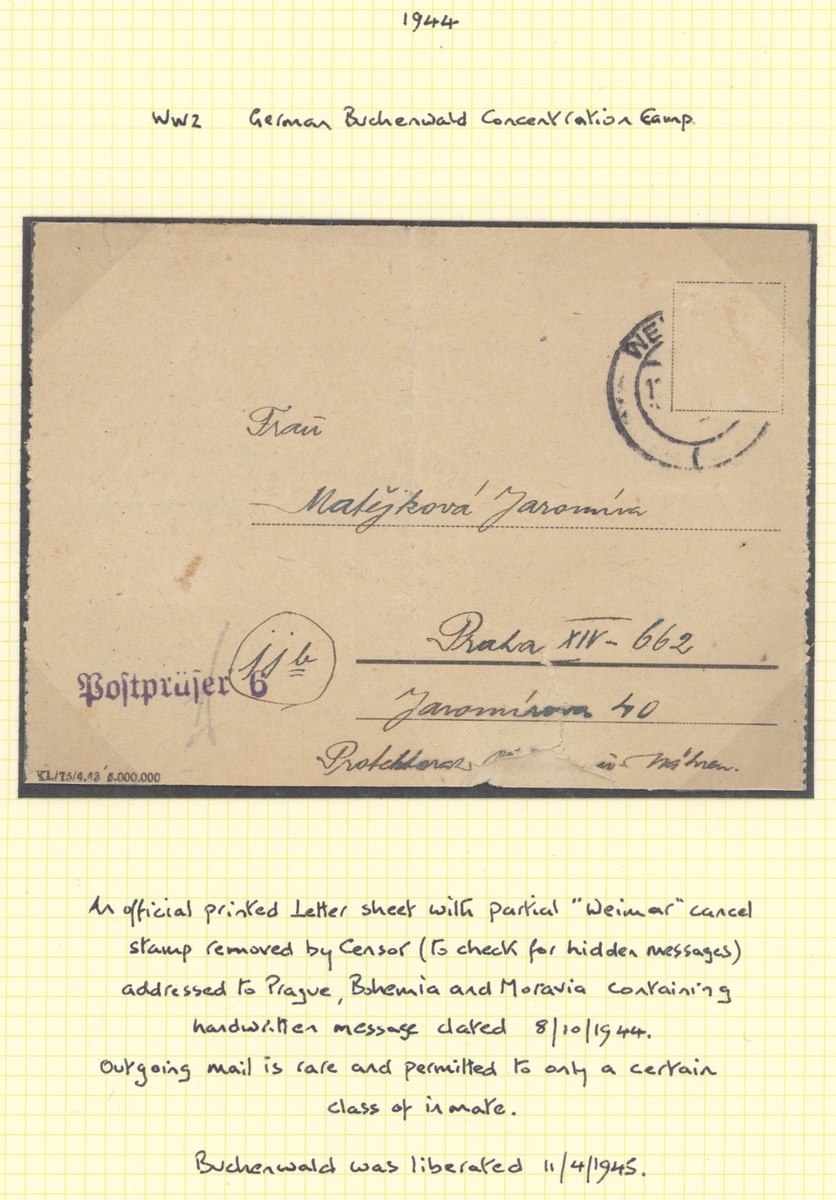 1944
WW2 German Buchenwald Concentration Camp.
WEI
Frau
Matějková Jaromíra
Praha XIV - 662
Postprüfer 6
jjb
Jaromírova 40
Protektorat u. Mähren.
KL/75/4.43 5.000.000
An official printed Letter sheet with partial "Weimar" cancel
stamp removed by Censor (to check for hidden messages)
addressed to Prague, Bohemia and Moravia containing
handwritten message dated 8/10/1944.
Outgoing mail is rare and permitted to only a certain
class of inmate.
Buchenwald was liberated 11/4/1945.